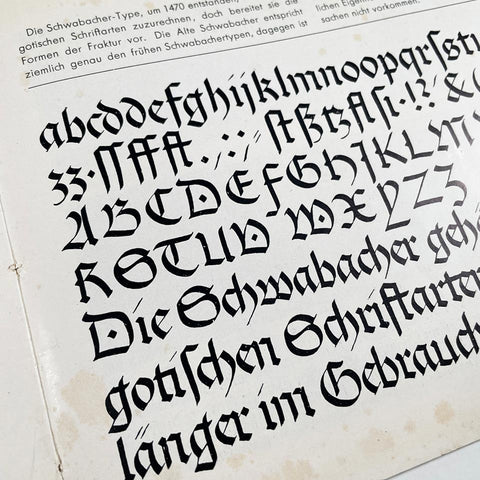 Die Schwabacher-Type, um 1470 entstanden,
gotischen Schriftarten zuzurechnen, doch bereitet sie die
Formen der Fraktur vor. Die Alte Schwabacher entspricht
ziemlich genau den frühen Schwabachertypen, dagegen ist
lichen
sachen nicht vorkommen.
abcddefghijklmnoopqrſstu
zz·ſſffft.,:;-/ ſtßtzflſi·!?&(
ABCDEFGHJKLM
RSTUVWXYZ
Die Schwabacher
gotiſchen Schriftarten
länger im Gebrauch